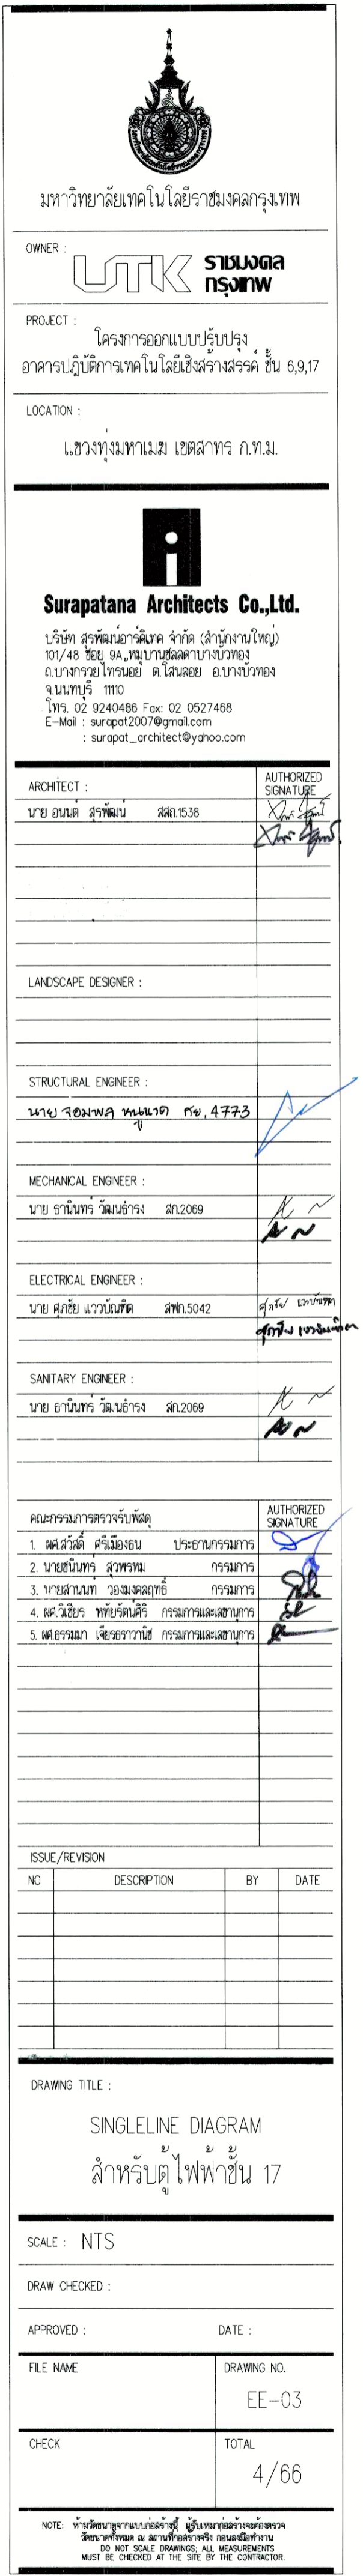 มหาวิทยาลัยเทคโนโลยีราชมงคลกรุงเทพ
OWNER :
UTK ราชมงคล
กรุงเทพ
PROJECT :
โครงการออกแบบปรับปรุง
อาคารปฏิบัติการเทคโนโลยีเชิงสร้างสรรค์ ชั้น 6,9,17
LOCATION :
แขวงทุ่งมหาเมฆ เขตสาทร ก.ท.ม.
Surapatana Architects Co.,Ltd.
บริษัท สุรพัฒน์อาร์คิเทค จำกัด (สำนักงานใหญ่)
101/48 ซอย 9A หมู่บ้านชลลดาบางบัวทอง
ถ.บางกรวยไทรน้อย ต.โสนลอย อ.บางบัวทอง
จ.นนทบุรี 11110
โทร. 02 9240486 Fax: 02 0527468
E-Mail : surapat2007@gmail.com
: surapat_architect@yahoo.com
ARCHITECT :
AUTHORIZED
SIGNATURE
นาย อนนต์ สุรพัฒน์ สสถ.1538
LANDSCAPE DESIGNER :
STRUCTURAL ENGINEER :
นาย จอมพล หนูนาด ภย. 4773
MECHANICAL ENGINEER :
นาย ธานินทร์ วัฒนธำรง สก.2069
ELECTRICAL ENGINEER :
นาย ศุภชัย แววบัณฑิต สฟก.5042
ศุภชัย แววบัณฑิต
ศุภชัย แววบัณฑิต
SANITARY ENGINEER :
นาย ธานินทร์ วัฒนธำรง สก.2069
คณะกรรมการตรวจรับพัสดุ
AUTHORIZED
SIGNATURE
1. ผศ.สวัสดิ์ ศรีเมืองธน ประธานกรรมการ
2. นายชนินทร์ สุวพรหม กรรมการ
3. นายสานนท์ วองมงคลฤทธิ์ กรรมการ
4. ผศ.วิเชียร หทัยรัตน์ศิริ กรรมการและเลขานุการ
5. ผศ.ธรรมมา เจียรธราวานิช กรรมการและเลขานุการ
ISSUE/REVISION
NO DESCRIPTION BY DATE
DRAWING TITLE :
SINGLELINE DIAGRAM
สำหรับตู้ไฟฟ้าชั้น 17
SCALE : NTS
DRAW CHECKED :
APPROVED : DATE :
FILE NAME DRAWING NO.
EE-03
CHECK TOTAL
4/66
NOTE: ห้ามวัดขนาดจากแบบก่อสร้างนี้ ผู้รับเหมาก่อสร้างจะต้องตรวจ
วัดขนาดทั้งหมด ณ สถานที่ก่อสร้างจริง ก่อนลงมือทำงาน
DO NOT SCALE DRAWINGS; ALL MEASUREMENTS
MUST BE CHECKED AT THE SITE BY THE CONTRACTOR.